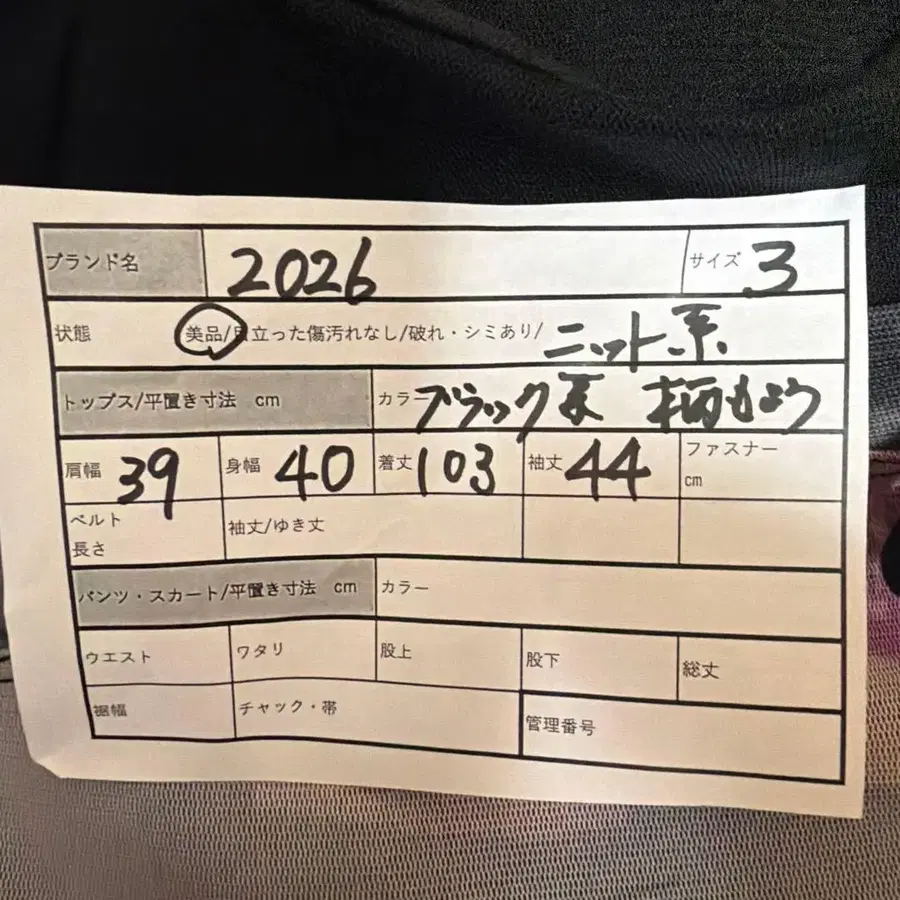 ブランド名 2026 サイズ 3
状態 美品/目立った傷汚れなし/破れ・シミあり/ ニット系
トップス/平置き寸法 cm カラー ブラック系 柄もよう
肩幅 39 身幅 40 着丈 103 袖丈 44 ファスナー cm
ベルト長さ 袖丈/ゆき丈
パンツ・スカート/平置き寸法 cm カラー
ウエスト ワタリ 股上 股下 総丈
裾幅 チャック・帯 管理番号